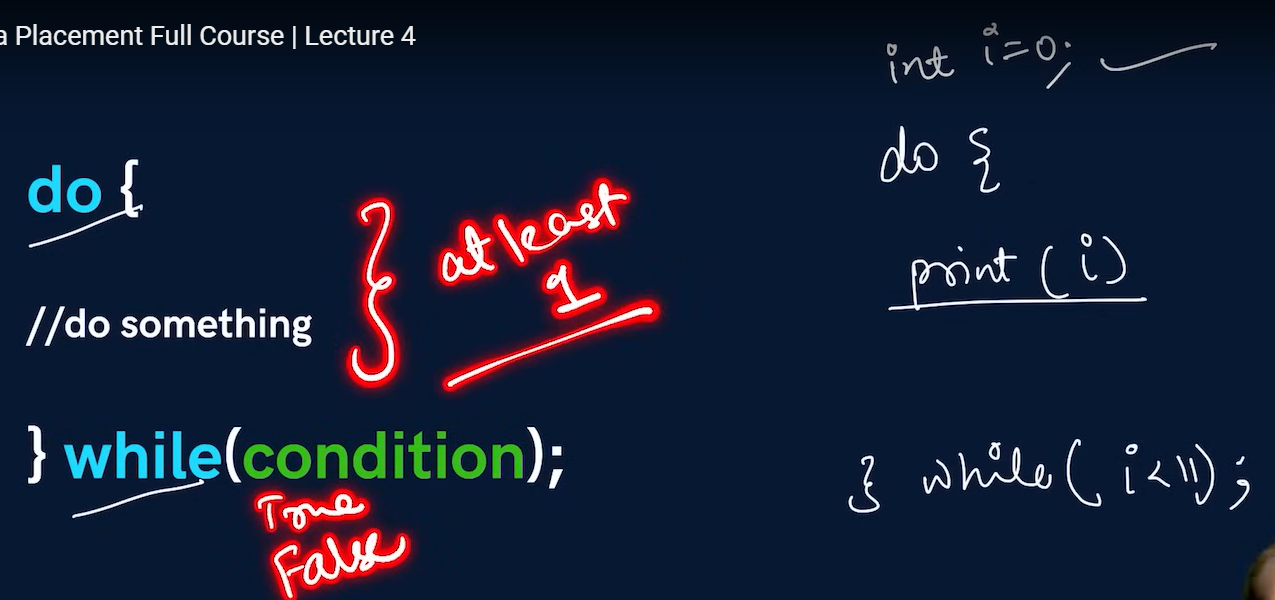 a Placement Full Course | Lecture 4
do {
//do something
} while(condition);
at least
1
True
False
int i=0;
do {
print (i)
} while( i<11);